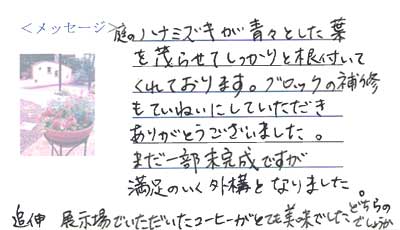 ＜メッセージ＞
庭のハナミズキが青々とした葉
を茂らせてしっかりと根付いて
くれております。ブロックの補修
もていねいにしていただき
ありがとうございました。
まだ一部未完成ですが
満足のいく外構となりました。
追伸 展示場でいただいたコーヒーがとても美味でした どちらの
でしょうか